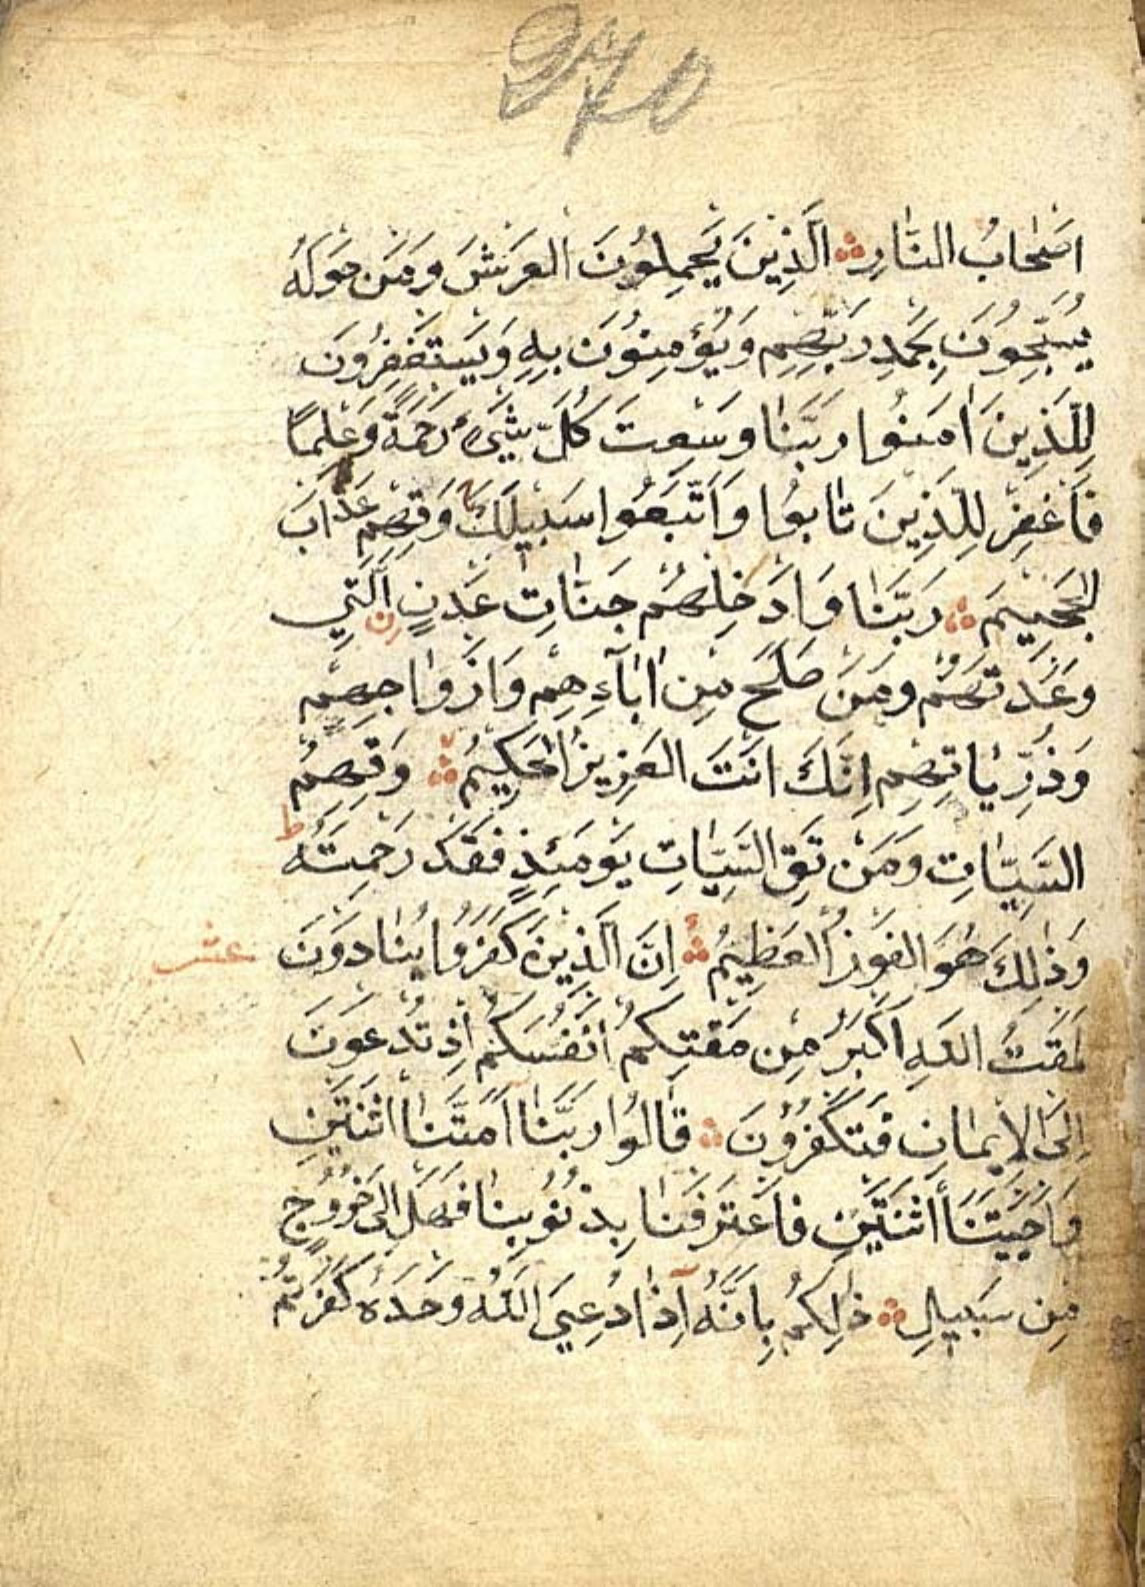 اَصْحَابُ النَّارِ اَلَّذِينَ يَحْمِلُونَ الْعَرْشَ وَمَنْ حَوْلَهُ
يُسَبِّحُونَ بِحَمْدِ رَبِّهِمْ وَيُؤْمِنُونَ بِهِ وَيَسْتَغْفِرُونَ
لِلَّذِينَ اٰمَنُوا رَبَّنَا وَسِعْتَ كُلَّ شَيْءٍ رَحْمَةً وَعِلْمًا
فَاغْفِرْ لِلَّذِينَ تَابُوا وَاتَّبَعُوا سَبِيلَكَ وَقِهِمْ عَذَابَ
الْجَحِيمِ رَبَّنَا وَاَدْخِلْهُمْ جَنَّاتِ عَدْنٍ الَّتِي
وَعَدْتَهُمْ وَمَنْ صَلَحَ مِنْ اٰبَآءِهِمْ وَاَزْوَاجِهِمْ
وَذُرِّيَّاتِهِمْ اِنَّكَ اَنْتَ الْعَزِيزُ الْحَكِيمُ وَقِهِمُ
السَّيِّاٰتِ وَمَنْ تَقِ السَّيِّاٰتِ يَوْمَئِذٍ فَقَدْ رَحِمْتَهُ ط
وَذٰلِكَ هُوَ الْفَوْزُ الْعَظِيمُ اِنَّ الَّذِينَ كَفَرُوا يُنَادَوْنَ عشر
لَمَقْتُ اللّٰهِ اَكْبَرُ مِنْ مَقْتِكُمْ اَنْفُسَكُمْ اِذْ تُدْعَوْنَ
اِلَى الْاِيمَانِ فَتَكْفُرُونَ قَالُوا رَبَّنَا اَمَتَّنَا اثْنَتَيْنِ
وَاَحْيَيْتَنَا اثْنَتَيْنِ فَاعْتَرَفْنَا بِذُنُوبِنَا فَهَلْ اِلَى خُرُوجٍ
مِنْ سَبِيلٍ ذٰلِكُمْ بِاَنَّهُ اِذَا دُعِيَ اللّٰهُ وَحْدَهُ كَفَرْتُمْ